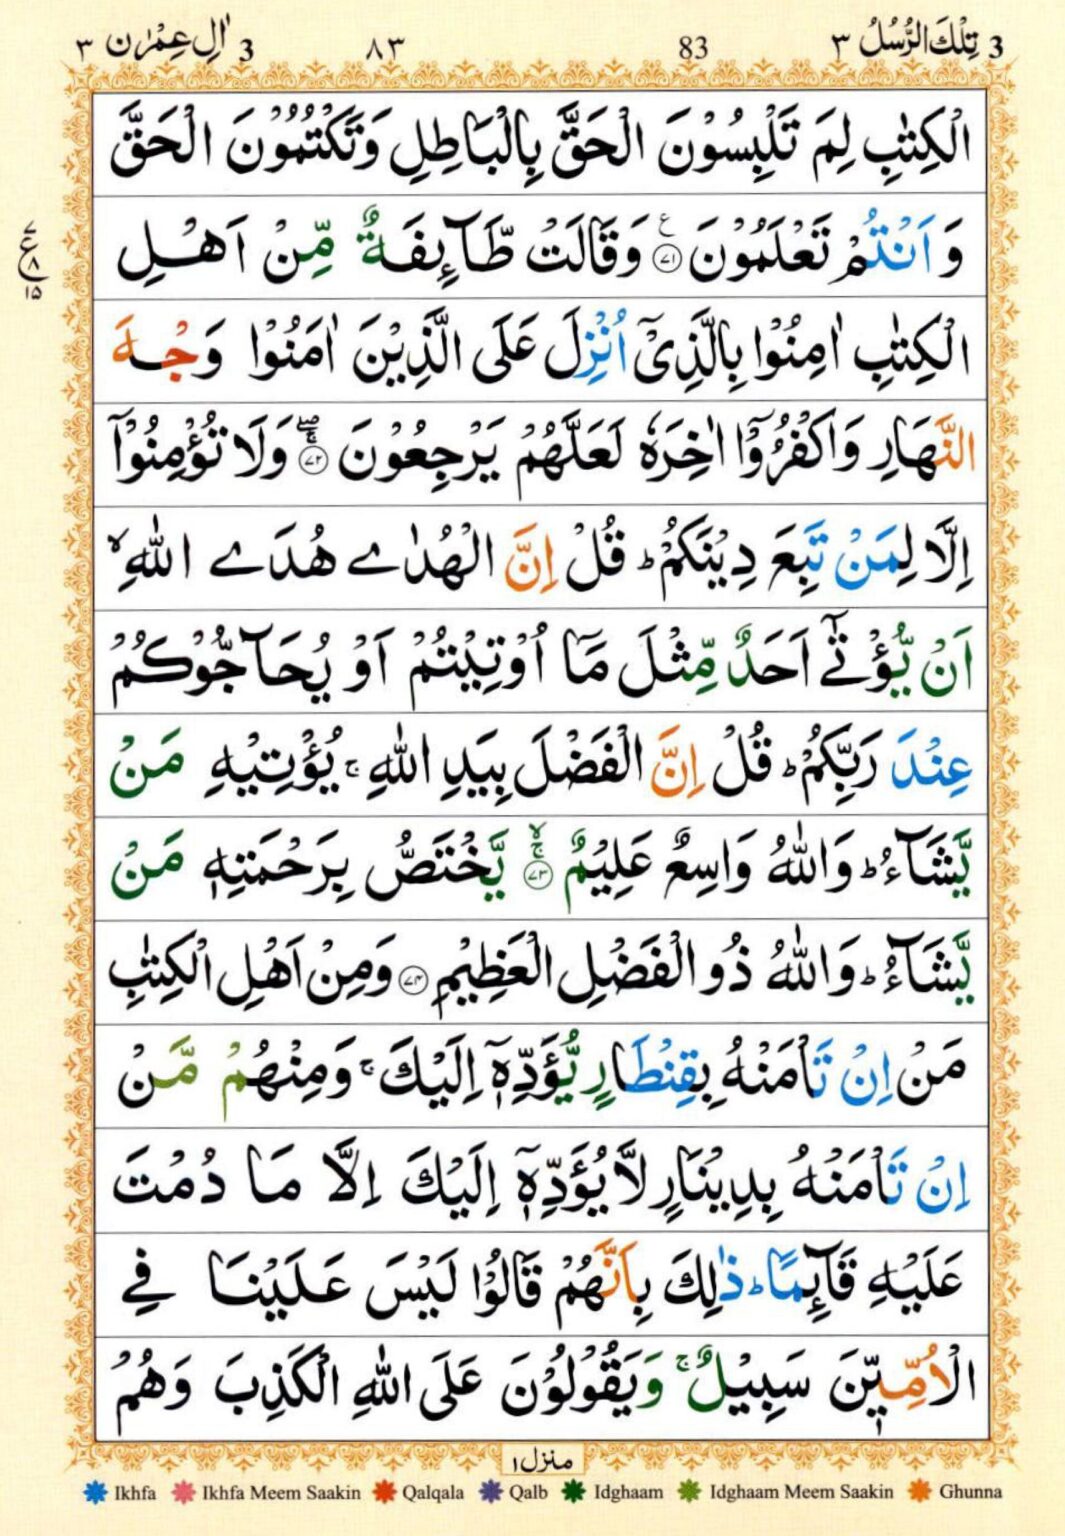 3 تِلْكَ الرُّسُلُ ٣ 83 ٨٣ 3 اٰلِ عِمْرٰن ٣
الْكِتٰبِ لِمَ تَلْبِسُوْنَ الْحَقَّ بِالْبَاطِلِ وَتَكْتُمُوْنَ الْحَقَّ
وَ اَنْتُمْ تَعْلَمُوْنَ ۧ﴿۷۱﴾ وَقَالَتْ طَّآئِفَةٌ مِّنْ اَهْلِ
ع ٧ ٨ ١٥
الْكِتٰبِ اٰمِنُوْا بِالَّذِیْۤ اُنْزِلَ عَلَی الَّذِیْنَ اٰمَنُوْا وَجْهَ
النَّهَارِ وَاكْفُرُوْۤا اٰخِرَهٗ لَعَلَّهُمْ یَرْجِعُوْنَ ۚۖ﴿۷۲﴾ وَلَا تُؤْمِنُوْۤا
اِلَّا لِمَنْ تَبِعَ دِیْنَكُمْ ؕ قُلْ اِنَّ الْهُدٰے هُدَے اللّٰهِ ۙ
اَنْ یُّؤْتٰۤے اَحَدٌ مِّثْلَ مَاۤ اُوْتِیْتُمْ اَوْ یُحَآجُّوْكُمْ
عِنْدَ رَبِّكُمْ ؕ قُلْ اِنَّ الْفَضْلَ بِیَدِ اللّٰهِ ۚ یُؤْتِیْهِ مَنْ
یَّشَآءُ ؕ وَاللّٰهُ وَاسِعٌ عَلِیْمٌ ۚۙ﴿۷۳﴾ یَّخْتَصُّ بِرَحْمَتِهٖ مَنْ
یَّشَآءُ ؕ وَاللّٰهُ ذُو الْفَضْلِ الْعَظِیْمِ ﴿۷۴﴾ وَمِنْ اَهْلِ الْكِتٰبِ
مَنْ اِنْ تَاْمَنْهُ بِقِنْطَارٍ یُّؤَدِّهٖۤ اِلَیْكَ ۚ وَمِنْهُمْ مَّنْ
اِنْ تَاْمَنْهُ بِدِیْنَارٍ لَّا یُؤَدِّهٖۤ اِلَیْكَ اِلَّا مَا دُمْتَ
عَلَیْهِ قَآئِمًا ؕ ذٰلِكَ بِاَنَّهُمْ قَالُوْا لَیْسَ عَلَیْنَا فِے
الْاُمِّیّٖنَ سَبِیْلٌ ۚ وَیَقُوْلُوْنَ عَلَی اللّٰهِ الْكَذِبَ وَهُمْ
منزل ١
Ikhfa Ikhfa Meem Saakin Qalqala Qalb Idghaam Idghaam Meem Saakin Ghunna